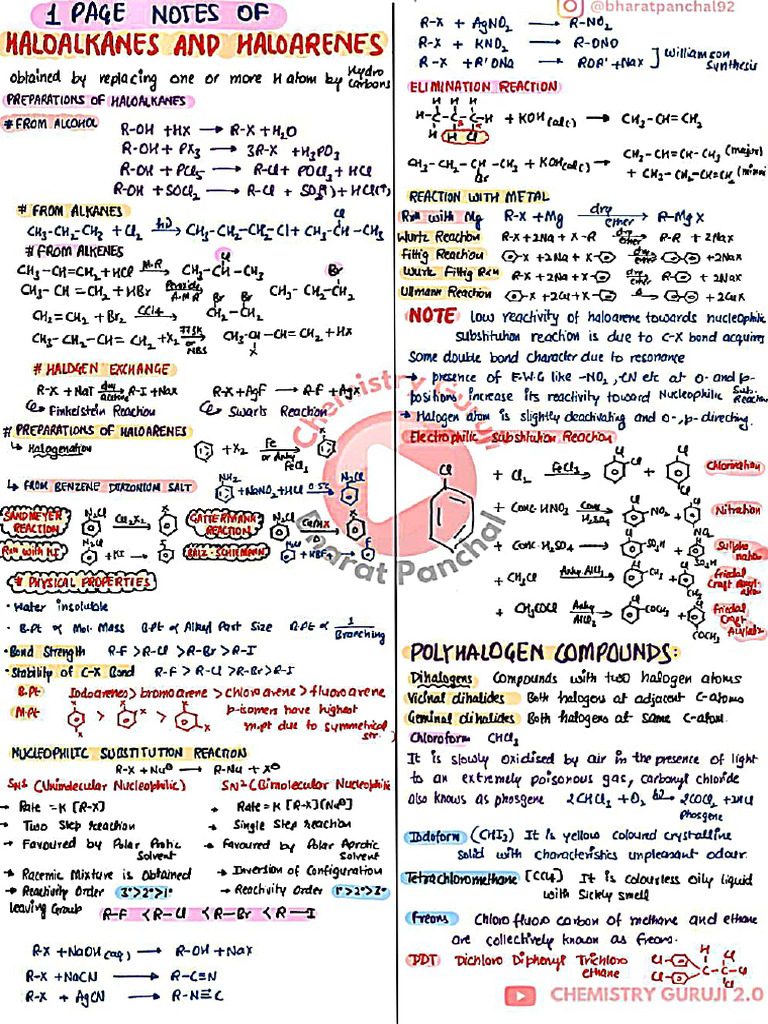 1 PAGE NOTES OF
HALOALKANES AND HALOARENES
obtained by replacing one or more H atom by Hydro carbons
PREPARATIONS OF HALOALKANES
# FROM ALCOHOL
R-OH + HX → R-X + H₂O
R-OH + PX₃ → 3R-X + H₃PO₃
R-OH + PCl₅ → R-Cl + POCl₃ + HCl
R-OH + SOCl₂ → R-Cl + SO₂(↑) + HCl(↑)
# FROM ALKANES
CH₃-CH₂-CH₃ + Cl₂ →hν CH₃-CH₂-CH₂Cl + CH₃-CH(Cl)-CH₃
# FROM ALKENES
CH₃-CH=CH₂ + HCl →M.R CH₃-CH(Cl)-CH₃
CH₃-CH=CH₂ + HBr →Peroxide A.M.R CH₃-CH₂-CH₂Br
CH₂=CH₂ + Br₂ →CCl₄ CH₂(Br)-CH₂(Br)
CH₃-CH₂-CH=CH₂ + X₂ → or NBS CH₃-CH(X)-CH=CH₂ + HX
# HALOGEN EXCHANGE
R-X + NaI →dry acetone R-I + NaX R-X + AgF → R-F + AgX
Finkelstein Reaction Swarts Reaction
# PREPARATIONS OF HALOARENES
↳ Halogenation + X₂ →Fe or Anhy FeCl₃ X
↳ FROM BENZENE DIAZONIUM SALT NH₂ + NaNO₂ + HCl →0-5℃ N₂Cl
SANDMEYER REACTION N₂Cl →Cu₂X₂ X GATTERMANN REACTION N₂Cl →Cu/HX X
Rxn with KI N₂Cl + KI → I BALZ-SCHIEMANN N₂Cl + HBF₄ → F
# PHYSICAL PROPERTIES
• Water insoluble
• B.Pt ∝ Mol. Mass B.Pt ∝ Alkyl Part Size B.Pt ∝ 1/Branching
• Bond Strength R-F > R-Cl > R-Br > R-I
• Stability of C-X Bond R-F > R-Cl > R-Br > R-I
B.Pt Iodoarenes > bromoarene > chloroarene > fluoroarene
M.Pt X X > X X > X X p-isomers have highest m.pt due to symmetrical str.
NUCLEOPHILIC SUBSTITUTION REACTION
R-X + Nu⊖ → R-Nu + X⊖
SN1 (Unimolecular Nucleophilic) SN2 (Bimolecular Nucleophilic
→ Rate = K [R-X] → Rate = K [R-X][Nu⊖]
→ Two Step reaction → Single Step reaction
→ Favoured by Polar Protic Solvent → Favoured by Polar Aprotic Solvent
→ Racemic Mixture is Obtained → Inversion of Configuration
→ Reactivity Order 3°>2°>1° → Reactivity Order 1°>2°>3°
leaving Group R-F < R-Cl < R-Br < R-I
R-X + NaOH(aq) → R-OH + NaX
R-X + NaCN → R-C≡N
R-X + AgCN → R-N≡C
@bharatpanchal92
R-X + AgNO₂ → R-NO₂
R-X + KNO₂ → R-ONO
R-X + R'ONa → ROR' + NaX ] Williamson Synthesis
ELIMINATION REACTION
H H H
H-C-C-C-H + KOH(alc) → CH₃-CH=CH₂
H H Cl
CH₃-CH₂-CH(Br)-CH₃ + KOH(alc) → CH₃-CH=CH-CH₃ (major)
+ CH₃-CH₂-CH=CH₂ (mino
REACTION WITH METAL
Rxn with Mg R-X + Mg →dry ether R-MgX
Wurtz Reaction R-X + 2Na + X-R →dry ether R-R + 2NaX
Fittig Reaction X + 2Na + X →dry ether + 2NaX
Wurtz Fittig Rxn R-X + 2Na + X →dry ether R + 2NaX
Ullmann Reaction I + 2Cu + I →Δ + 2CuI
NOTE low reactivity of haloarene towards nucleophilic
substitution reaction is due to C-X bond acquires
Some double bond character due to resonance
→ presence of E.W.G like -NO₂, -CN etc at o- and p-
positions increase its reactivity toward Nucleophilic Sub.
→ Halogen atom is slightly deactivating and o-, p- directing.
Electrophilic Substitution Reaction
Cl
+ Cl₂ →FeCl₃ Cl Cl + Cl Cl Chlorination
+ Conc. HNO₃ →Conc H₂SO₄ Cl NO₂ + Cl NO₂ Nitration
+ Conc. H₂SO₄ → Cl SO₃H + Cl SO₃H Sulpho nation
+ CH₃Cl →Anhy. AlCl₃ Cl CH₃ + Cl CH₃ Friedal Craft Alkylation
+ CH₃COCl →Anhy AlCl₃ Cl COCH₃ + Cl COCH₃ Friedal Craft Acylatio
POLYHALOGEN COMPOUNDS:
Dihalogens Compounds with two halogen atoms
Vicinal dihalides Both halogens at adjacent C-atoms
Geminal dihalides Both halogens at same C-atom.
Chloroform CHCl₃
It is slowly oxidised by air in the presence of light
to an extremely poisonous gas, carbonyl chloride
also known as phosgene 2CHCl₃ + O₂ →hν 2COCl₂ + 2HCl
Phosgene
Iodoform (CHI₃) It is yellow coloured crystalline
solid with characteristics unpleasant odour.
Tetrachloromethane [CCl₄] It is colourless oily liquid
with Sickly smell
Freons Chloro fluoro carbon of methane and ethane
are collectively known as freons.
DDT Dichloro Diphenyl Trichloro ethane Cl Cl H C-C Cl Cl Cl
CHEMISTRY GURUJI 2.0
Chemistry Guruji
Bharat Panchal